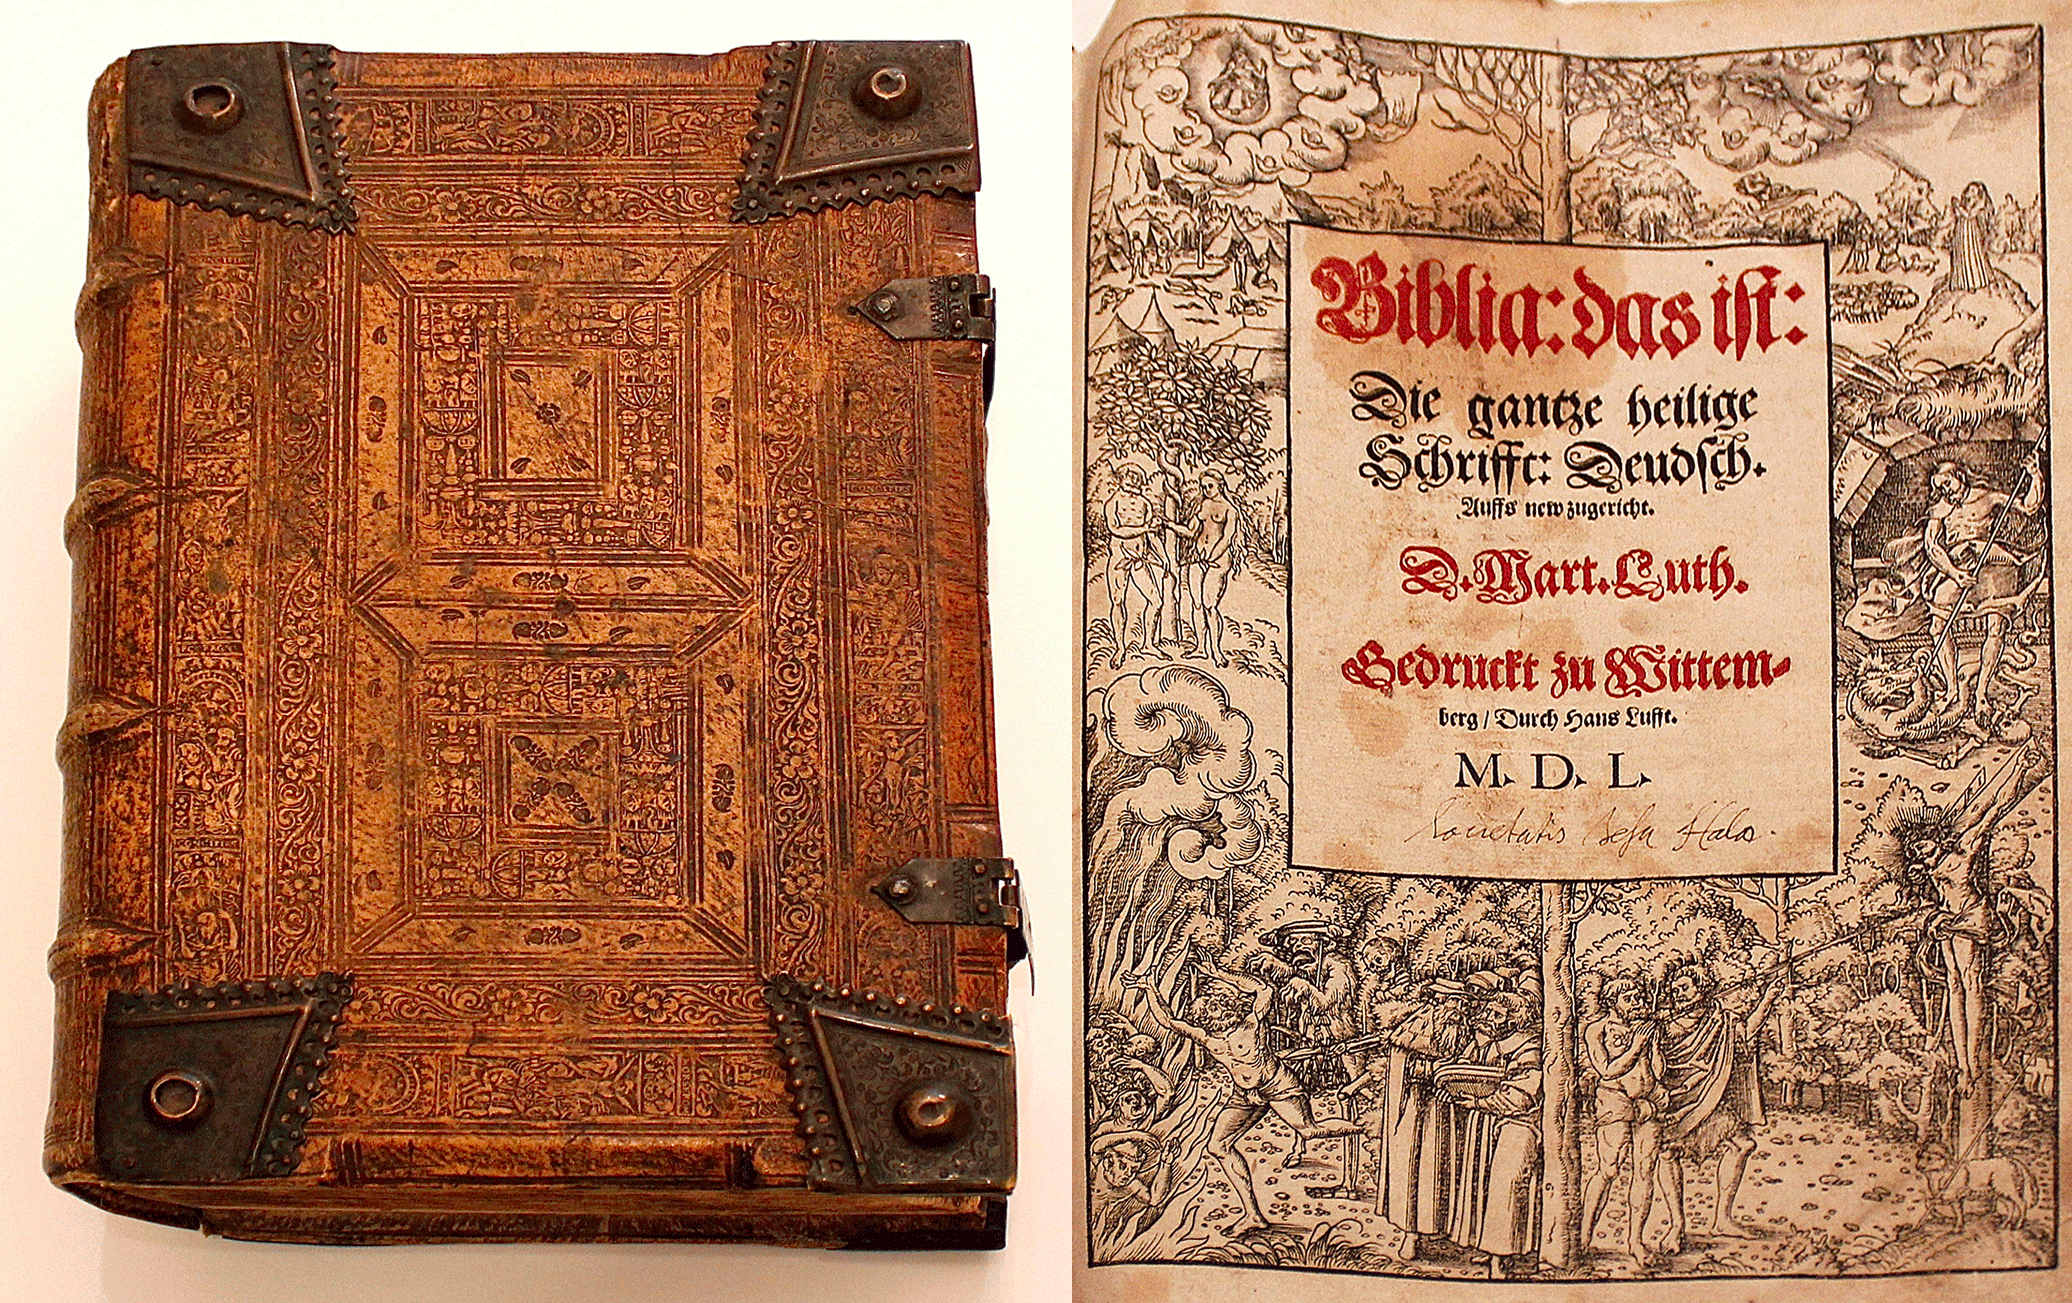 Biblia: das iſt:
Die gantze heilige
Schrifft: Deudſch.
Auffs new zugericht.
D. Mart. Luth.
Gedruckt zu Wittem-
berg / Durch Hans Lufft.
M. D. L.
Societatis Jesu